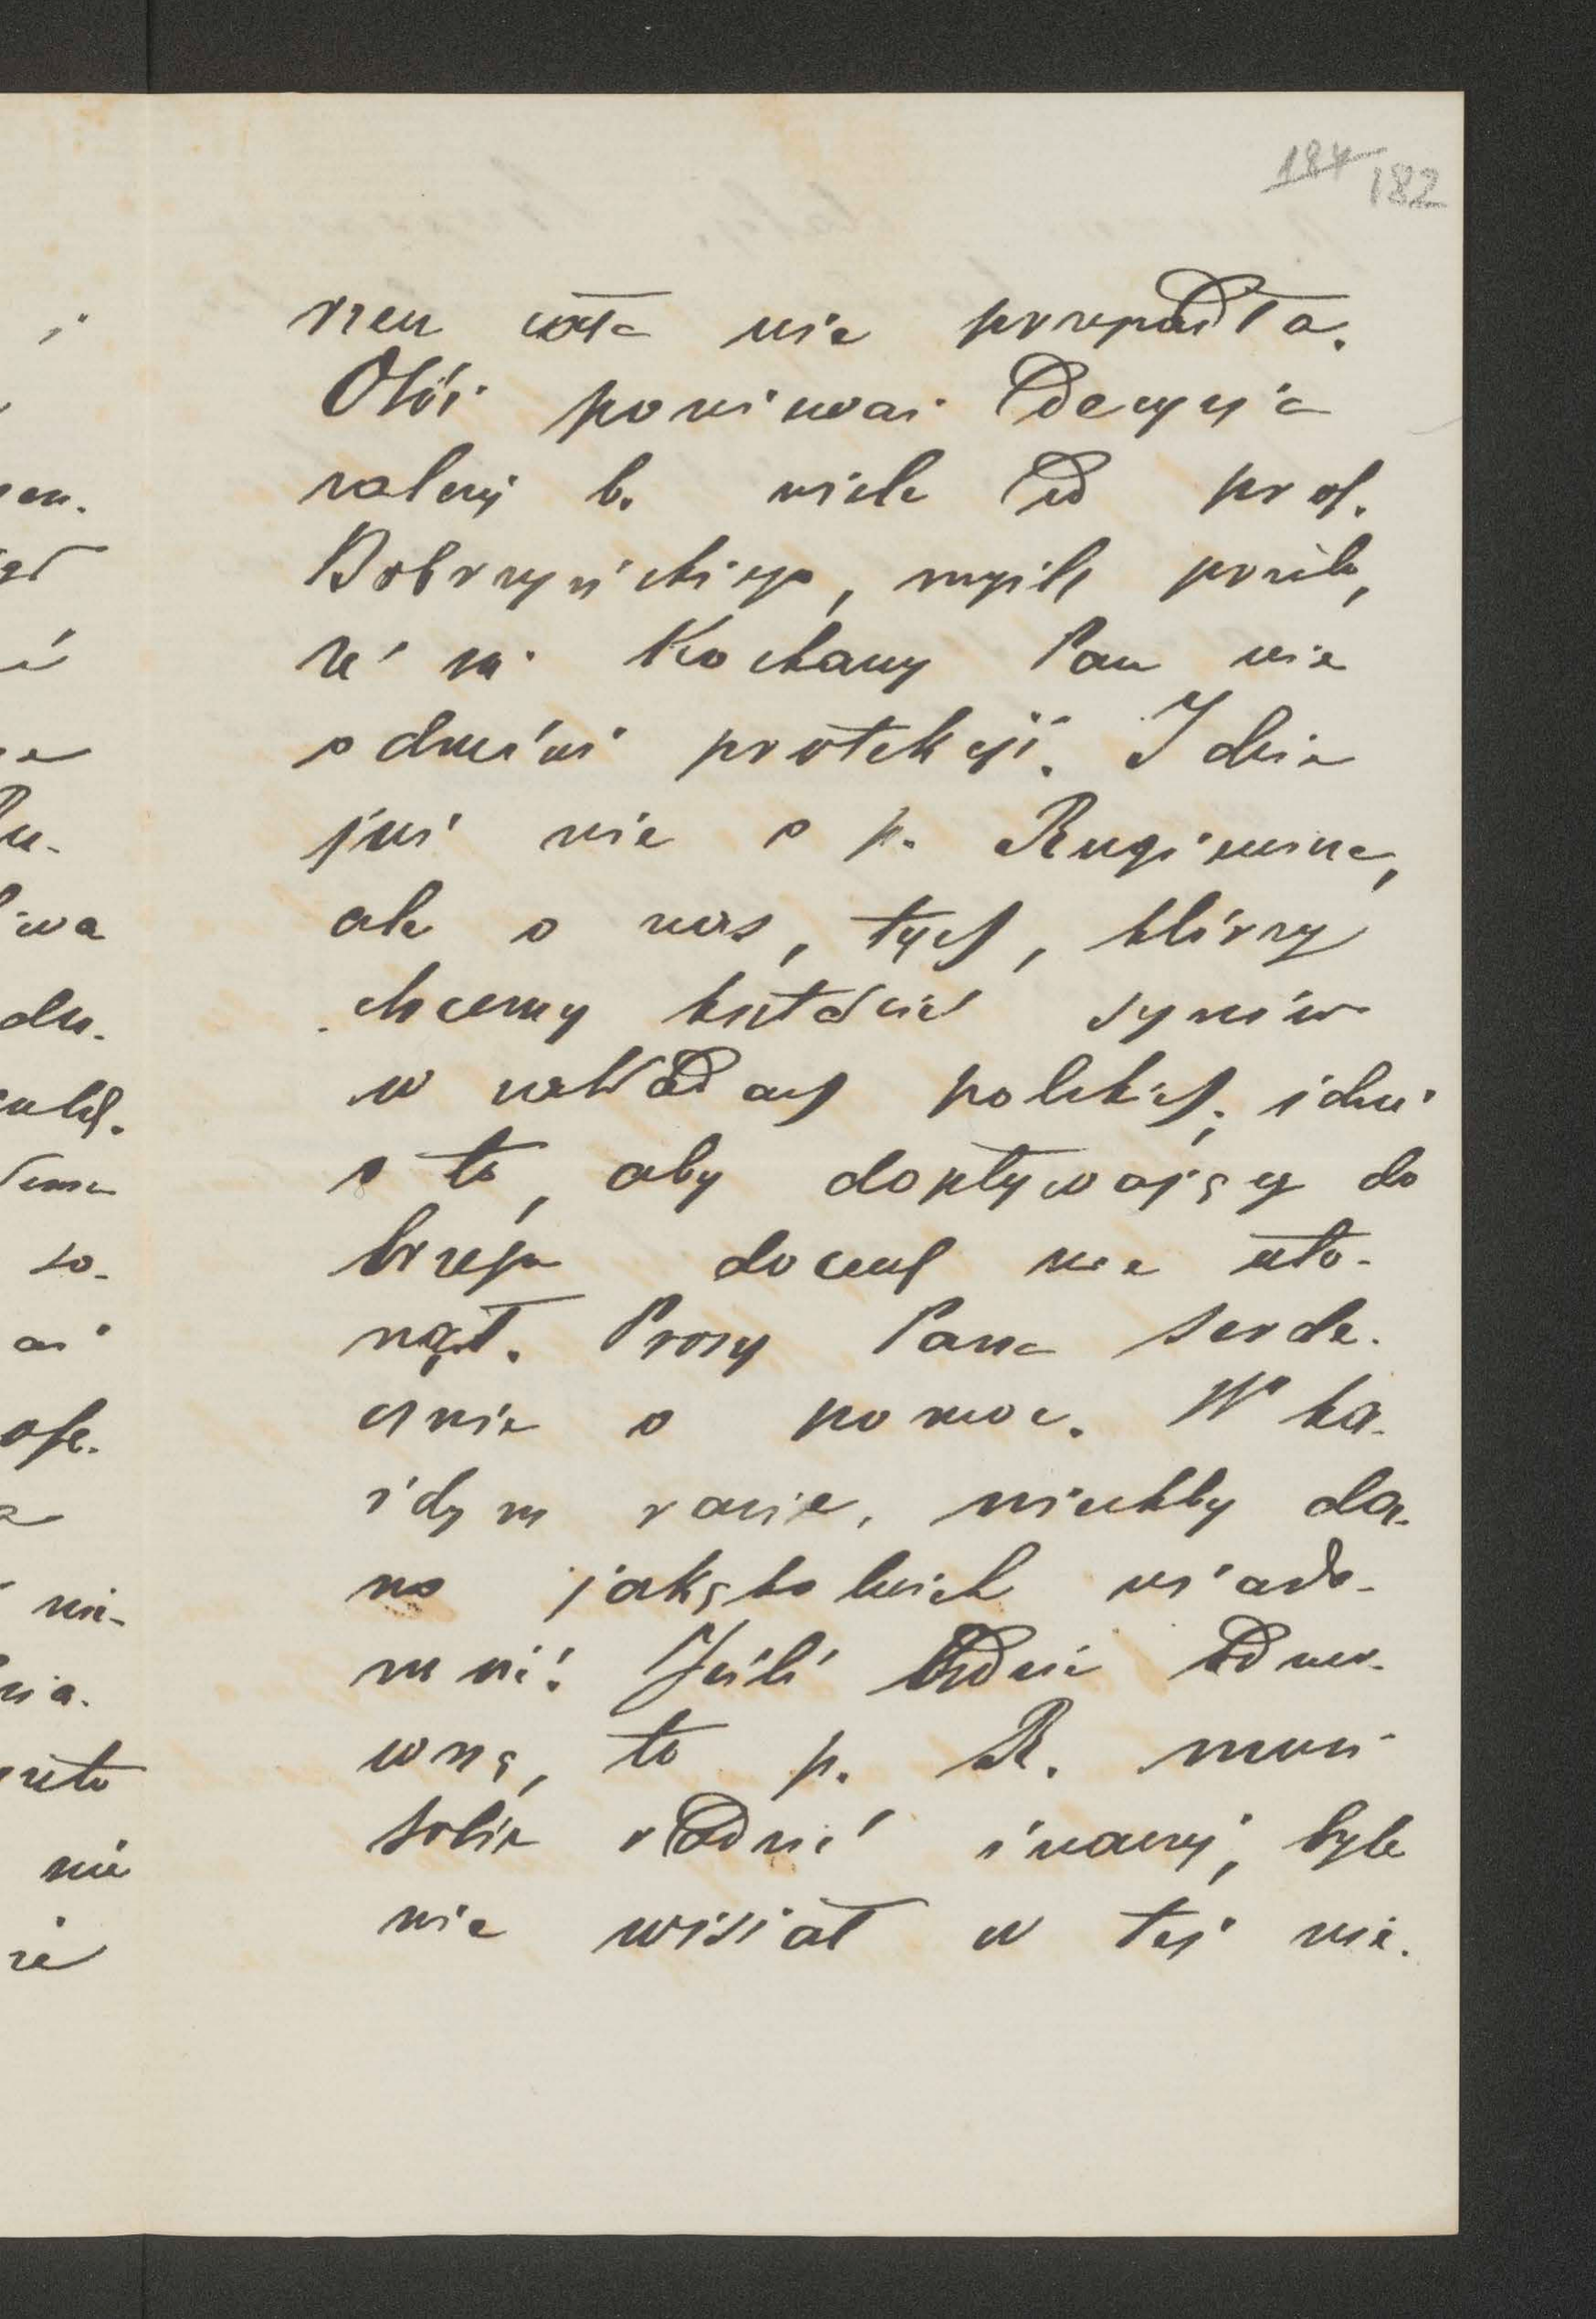 184 182
rzeu cała nie przepadła.
Otóż ponieważ decyzja
zależy b. wiele od prof.
Dobrzyńskiego, myślę prosić,
że mi Kochany Pan nie
odmówi protekcji. Idzie
już nie o p. Rugiewicza,
ale o nas, tych, którzy
chcemy kształcić synów
w zakładach polskich; idzie
o to, aby dopływający do
brzegu docent nie uto-
nął. Proszę Pana serde-
cznie o pomoc. W ka-
żdym razie, niechby da-
no jakąkolwiek wiado-
mość! Jeśli będzie odmo-
wną, to p. R. musi
sobie radzić inaczej, byle
nie wisiał w tej nie-
i
wa
du-
so-
nie-
nia-
nie
że